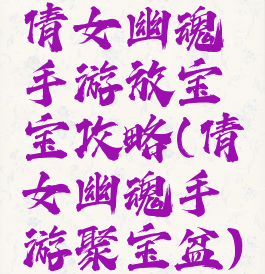 倩女幽魂
手游放宝
宝攻略(倩
女幽魂手
游聚宝盆)